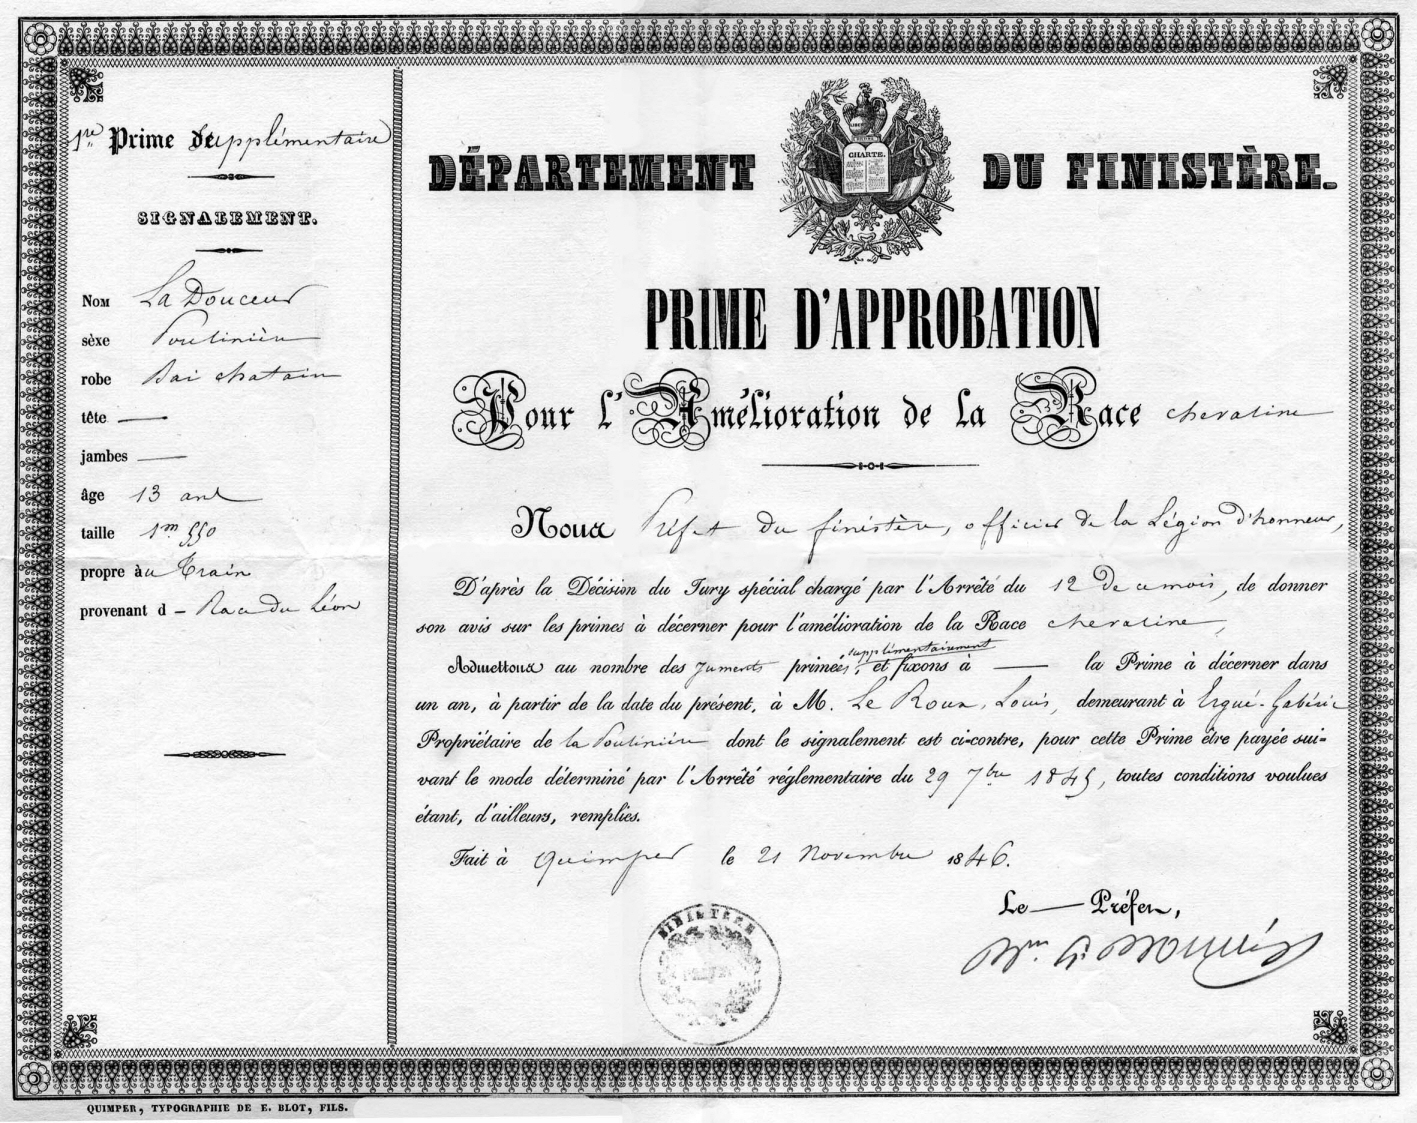 1re Prime de supplémentaire
SIGNALEMENT.
Nom La Douceur
sèxe Poulinière
robe Bai chatain
tête —
jambes —
âge 13 ans
taille 1m 550
propre au Train
provenant d - Race du Léon
DÉPARTEMENT DU FINISTÈRE.
CHARTE.
PRIME D'APPROBATION
Pour l'Amélioration de la Race chevaline
Nous Préfet du finistère, officier de la Légion d'honneur,
D'après la Décision du Jury spécial chargé par l'Arrêté du 12 de ce mois, de donner
son avis sur les primes à décerner pour l'amélioration de la Race chevaline,
supplémentairement
Admettons au nombre des juments primées, et fixons à — la Prime à décerner dans
un an, à partir de la date du présent, à M. Le Roux, Louis, demeurant à Ergué-Gabéric
Propriétaire de la Poulinière dont le signalement est ci-contre, pour cette Prime être payée sui-
vant le mode déterminé par l'Arrêté réglementaire du 29 7bre 1845, toutes conditions voulues
étant, d'ailleurs, remplies.
Fait à Quimper le 21 Novembre 1846.
Le — Préfet,
FINISTÈRE
QUIMPER, TYPOGRAPHIE DE E. BLOT, FILS.